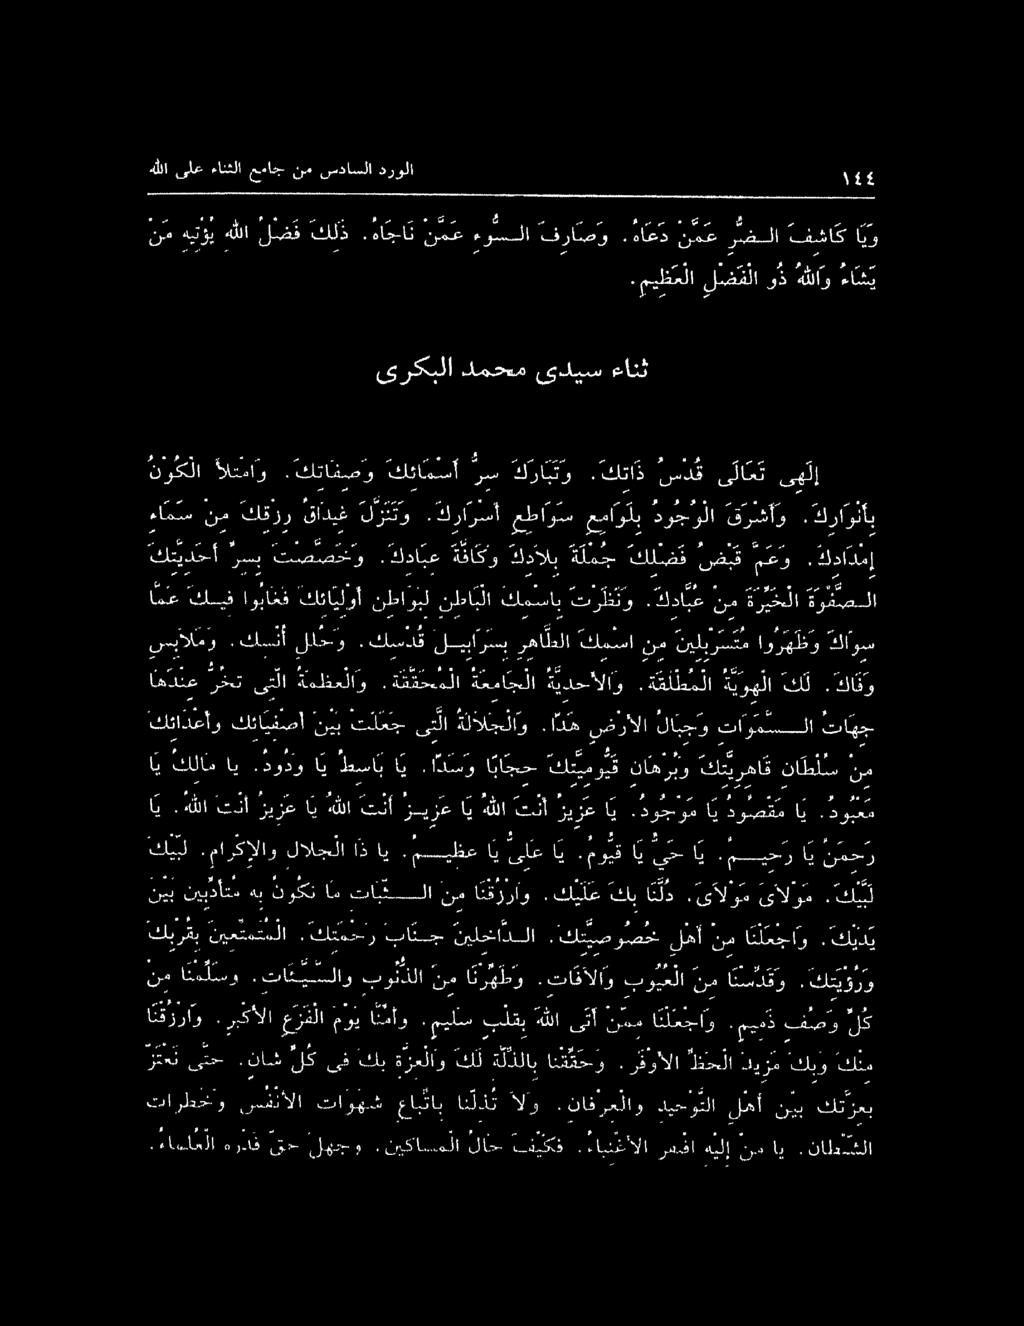 ١٤٤ الورد السادس من جامع الثناء على الله
وَيَا كَاشِفَ الـضُّرِّ عَمَّنْ دَعَاهُ. وَصَارِفَ الـسُّوءِ عَمَّنْ نَاجَاهُ. ذَلِكَ فَضْلُ اللهِ يُؤْتِيهِ مَنْ
يَشَاءُ وَاللهُ ذُو الْفَضْلِ الْعَظِيمِ.
ثناء سيدى محمد البكرى
إِلَهِى تَعَالَى قُدْسُ ذَاتِكَ. وَتَبَارَكَ سِرُّ أَسْمَائِكَ وَصِفَاتِكَ. وَامْتَلأَ الْكَوْنُ
بِأَنْوَارِكَ. وَأَشْرَقَ الْوُجُودُ بِلَوَامِعِ سَوَاطِعِ أَسْرَارِكَ. وَتَنَزَّلَ غَيْدَاقُ رِزْقِكَ مِنْ سَمَاءِ
إِمْدَادِكَ. وَعَمَّ قَبْضُ فَضْلِكَ جُمْلَةَ بِلاَدِكَ وَكَافَّةَ عِبَادِكَ. وَخَصَّصْتَ بِسِرِّ أَحَدِيَّتِكَ
الـصَّفْوَةَ الْخَيِّرَةَ مِنْ عُبَّادِكَ. وَنَظَرْتَ بِاسْمِكَ الْبَاطِنِ لِبَوَاطِنِ أَوْلِيَائِكَ فَغَابُوا فِيـكَ عَمَّا
سِوَاكَ وَظَهَرُوا مُتَسَرْبِلِينَ مِنِ اسْمِكَ الظَّاهِرِ بِسَرَابِيـلِ قُدْسِكَ. وَحُلَلِ أُنْسِكَ. وَمَلاَبِسِ
وَفَاكَ. لَكَ الْهُوِيَّةُ الْمُطْلَقَةُ. وَالأَحَدِيَّةُ الْجَامِعَةُ الْمُحَقَّقَةُ. وَالْعَظَمَةُ الَّتِى تَخِرُّ عِنْدَهَا
جِهَاتُ الـسَّمَوَاتِ وَجِبَالُ الأَرْضِ هَدًّا. وَالْجَلاَلَةُ الَّتِى جَعَلَتْ بَيْنَ أَصْفِيَائِكَ وَأَعْدَائِكَ
مِنْ سُلْطَانِ قَاهِرِيَّتِكَ وَبُرْهَانِ قَيُّومِيَّتِكَ حِجَابًا وَسَدًّا. يَا بَاسِطُ يَا وَدُودُ. يا مَالِكُ يَا
مَعْبُودُ. يَا مَقْصُودُ يَا مَوْجُودُ. يَا عَزِيزُ أَنْتَ اللهُ يَا عَزِيـزُ أَنْتَ اللهُ يَا عَزِيزُ أَنْتَ اللهُ. يَا
رَحْمَنُ يَا رَحِيـمُ. يَا حَىُّ يَا قَيُّومُ. يَا عَلِىُّ يَا عَظِيـمُ. يا ذَا الْجَلاَلِ وَالإِكْرَامِ. لَبَّيْكَ
لَبَّيْكَ. مَوْلاَىَ مَوْلاَىَ. دُلَّنَا بِكَ عَلَيْكَ. وَارْزُقْنَا مِنَ الـثَّبَاتِ مَا نَكُونُ بِهِ مُتَأَدِّبِينَ بَيْنَ
يَدَيْكَ. وَاجْعَلْنَا مِنْ أَهْلِ خُصُوصِيَّتِكَ. الـدَّاخِلِينَ جَنَابَ رَحْمَتِكَ. الْمُتَمَتِّعِينَ بِقُرْبِكَ
وَرُؤْيَتِكَ. وَقَدِّسْنَا مِنَ الْعُيُوبِ وَالآفَاتِ. وَطَهِّرْنَا مِنَ الذُّنُوبِ والـسَّيِّئَاتِ. وَسَلِّمْنَا مِنْ
كُلِّ وَصْفٍ ذَمِيمٍ. وَاجْعَلْنَا مِمَّنْ أَتَى اللهَ بِقَلْبٍ سَلِيمٍ. وَأَمِّنَّا يَوْمَ الْفَزَعِ الأَكْبَرِ. وَارْزُقْنَا
مِنْكَ وَبِكَ مَزِيدَ الْحَظِّ الأَوْفَرِ. وَحَقِّقْنَا بِالذِّلَّةِ لَكَ وَالْعِزَّةِ بِكَ فِى كُلِّ شَانٍ. حَتَّى نَعْتَزَّ
بِعِزَّتِكَ بَيْنَ أَهْلِ التَّوْحِيدِ وَالْعِرْفَانِ. وَلاَ تُذِلَّنَا بِاتِّبَاعِ شَهَوَاتِ الأَنْفُسِ وَخَطَرَاتِ
الشَّيْطَانِ. يا مَنْ إِلَيْهِ افْتَقَرَ الأَغْنِيَاءُ. فَكَيْفَ حَالُ الْمَسَاكِينِ. وَجَهِلَ حَقَّ قَدْرِهِ الْعُلَمَاءُ.